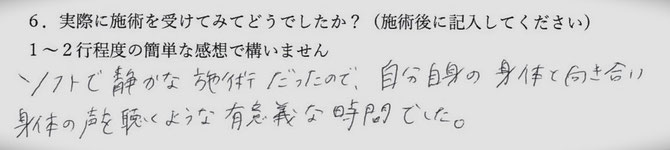 ６．実際に施術を受けてみてどうでしたか？（施術後に記入してください）
１～２行程度の簡単な感想で構いません
ソフトで静かな施術だったので、自分自身の身体と向き合い
身体の声を聴くような有意義な時間でした。